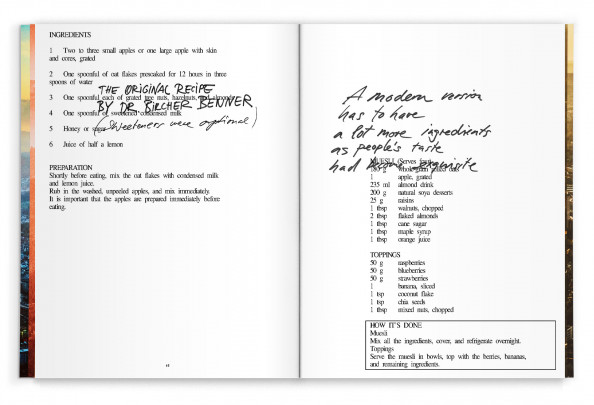 INGREDIENTS
1 Two to three small apples or one large apple with skin
and cores, grated
2 One spoonful of oat flakes presoaked for 12 hours in three
spoons of water
THE ORIGINAL RECIPE
3 One spoonful each of grated tree nuts, hazelnuts, and almonds
BY DR BIRCHER BENNER
4 One spoonful of sweetened condensed milk
(Sweeteners were optional)
5 Honey or sugar
6 Juice of half a lemon
PREPARATION
Shortly before eating, mix the oat flakes with condensed milk
and lemon juice.
Rub in the washed, unpeeled apples, and mix immediately.
It is important that the apples are prepared immediately before
eating.
A modern version
has to have
a lot more ingredients
as people's taste
had become exquisite
MUESLI (Serves four)
185 g wholegrain rolled oats
1 apple, grated
235 ml almond drink
200 g natural soya desserts
25 g raisins
1 tbsp walnuts, chopped
2 tbsp flaked almonds
1 tbsp cane sugar
1 tbsp maple syrup
1 tbsp orange juice
TOPPINGS
50 g raspberries
50 g blueberries
50 g strawberries
1 banana, sliced
1 tsp coconut flake
1 tsp chia seeds
1 tbsp mixed nuts, chopped
HOW IT'S DONE
Muesli
Mix all the ingredients, cover, and refrigerate overnight.
Toppings
Serve the muesli in bowls, top with the berries, bananas,
and remaining ingredients.